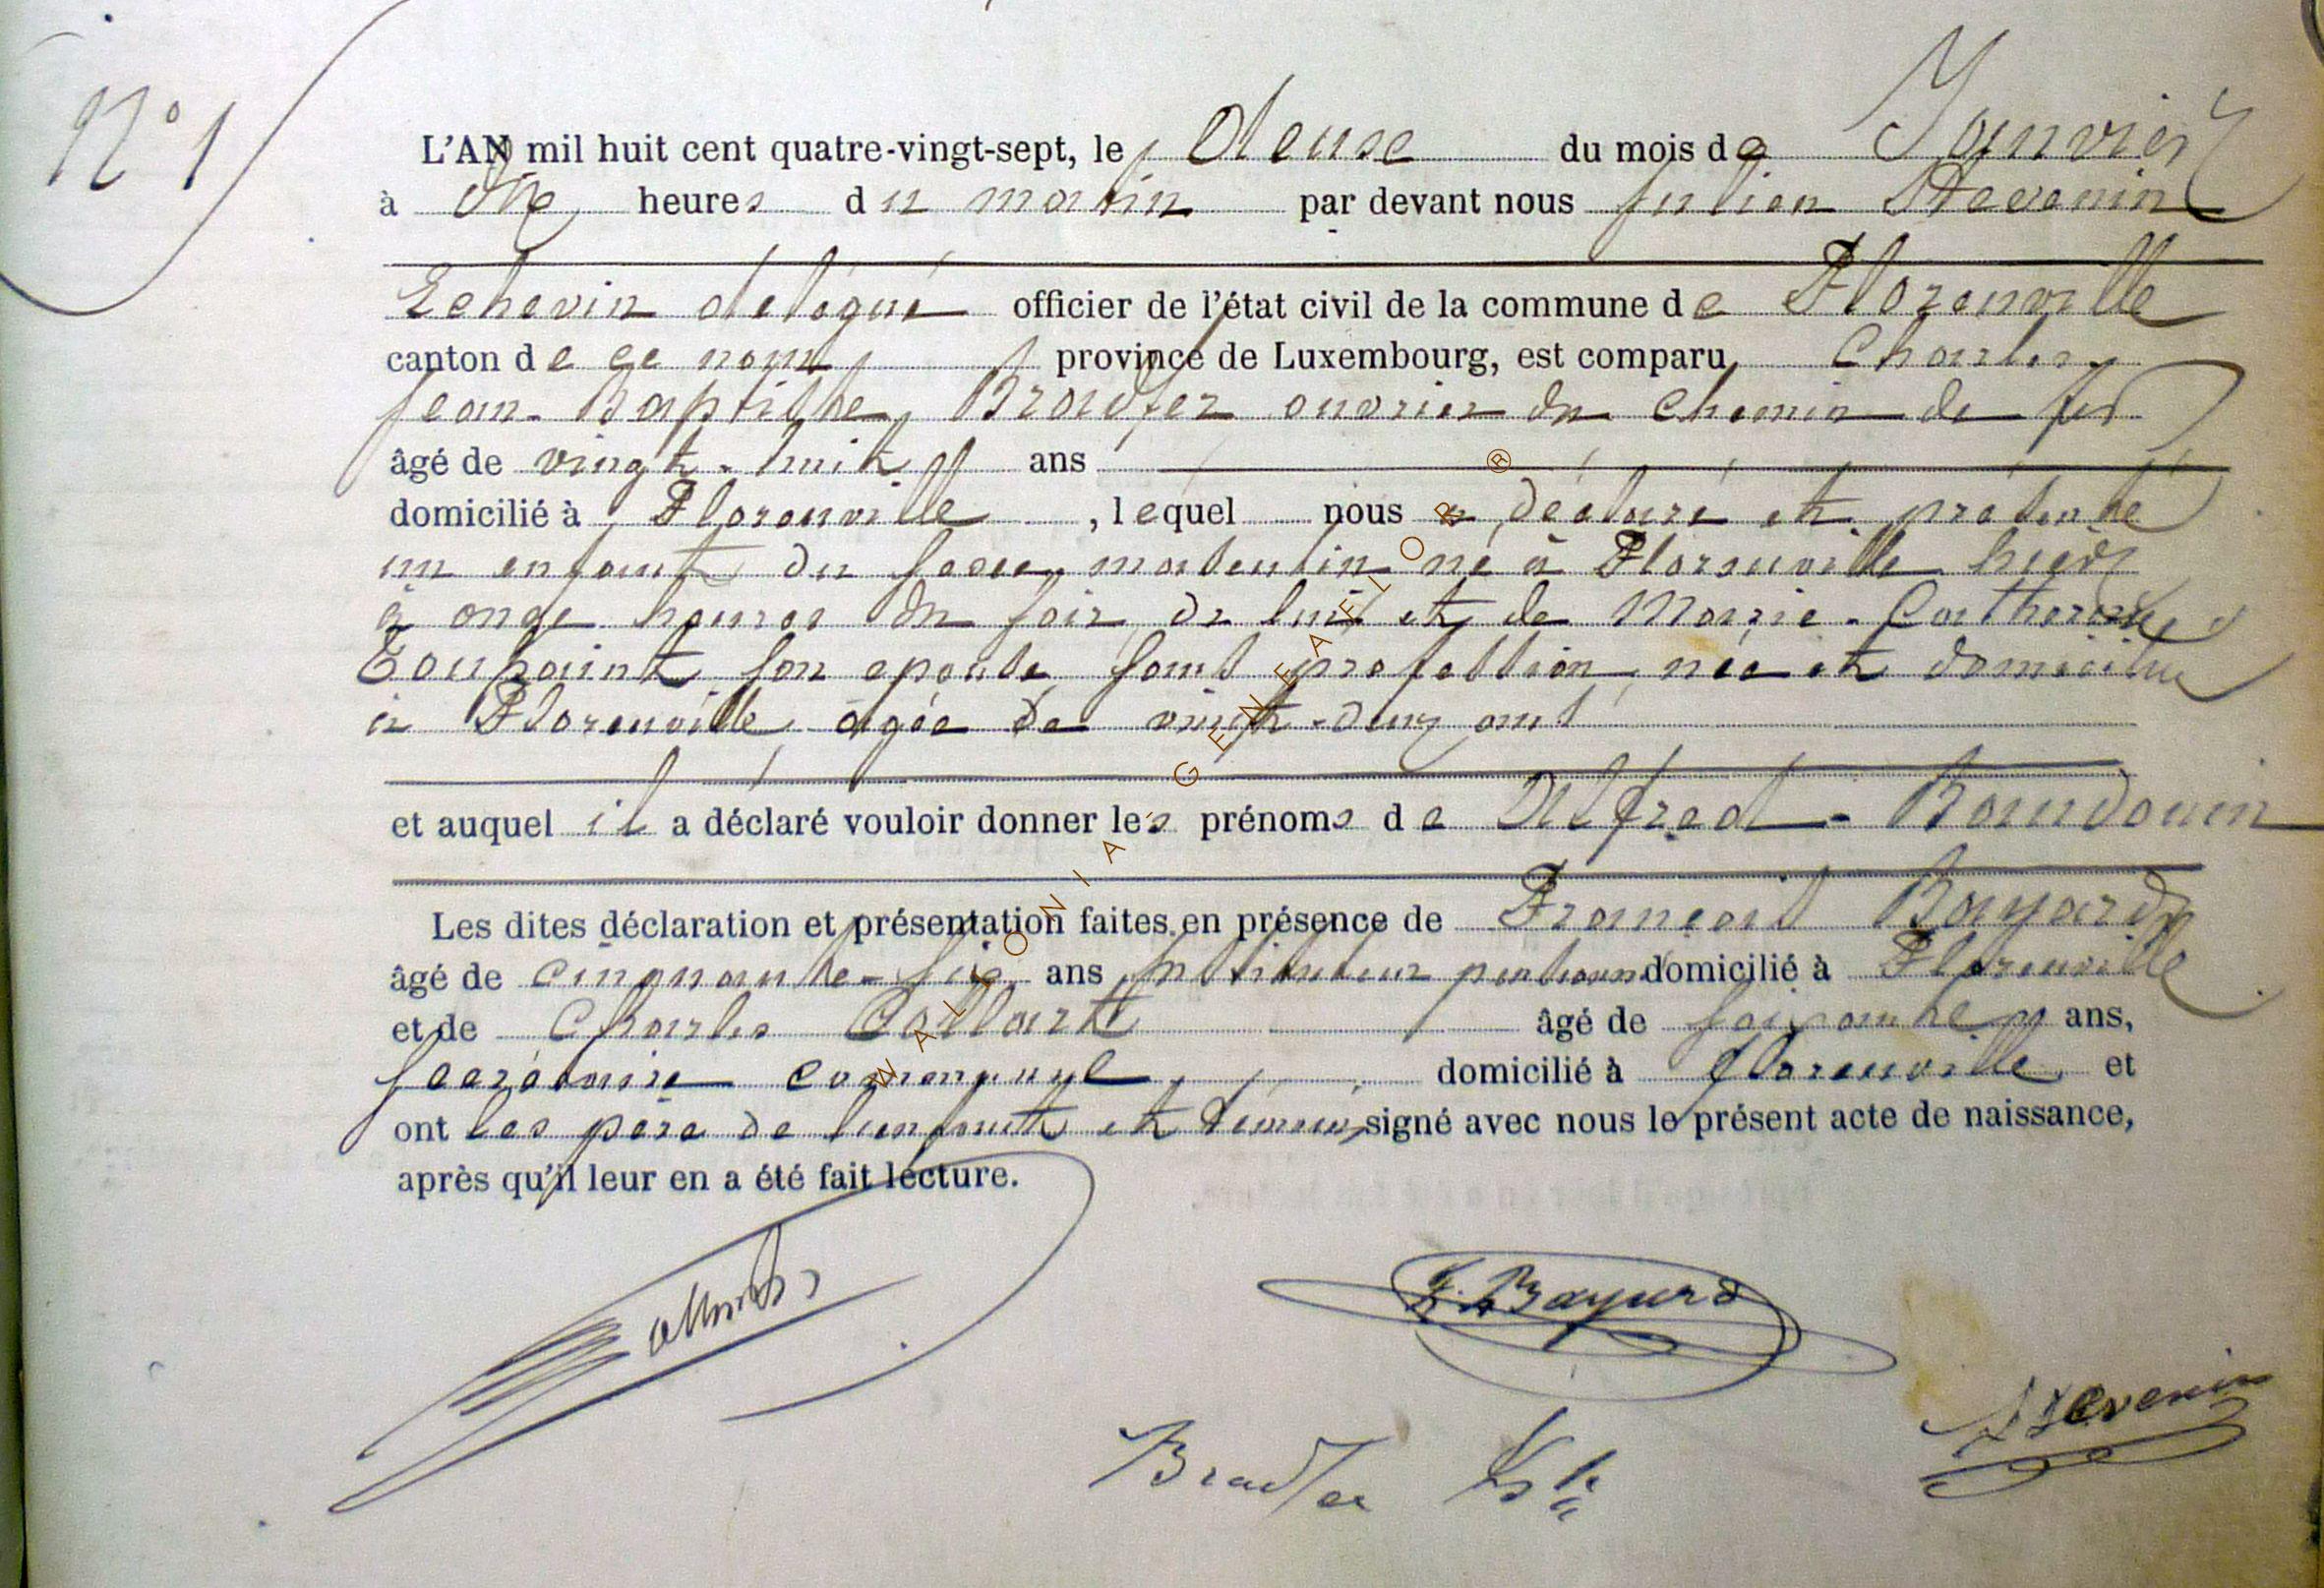 N° 1
L'AN mil huit cent quatre-vingt-sept, le deuse du mois de Janvier
à dix heures du matin par devant nous Julien Stevenin
Echevin délégué officier de l'état civil de la commune de Florenville
canton de ce nom, province de Luxembourg, est comparu, Charles
Jean-Baptiste, ouvrier du chemin de fer
âgé de vingt-huit ans
domicilié à Florenville, lequel nous a déclaré et présenté
un enfant du sexe masculin né à Florenville hier
à onze heures du soir de lui et de Marie-Catherine
Toupaint son epouse sans profession née et domiciliée
à Florenville âgée de vingt-deux ans
et auquel il a déclaré vouloir donner les prénoms de Alfred-Baudouin
Les dites déclaration et présentation faites en présence de François Bayard
âgé de cinquante-six ans Instituteur domicilié à Florenville
et de Charles Collart âgé de soixante ans,
secrétaire communal domicilié à florenville et
ont les père de lenfant et témoins signé avec nous le présent acte de naissance,
après qu'il leur en a été fait lecture.
F. Bayard
Stevenin
WALLONIA GENEAFLOR ®